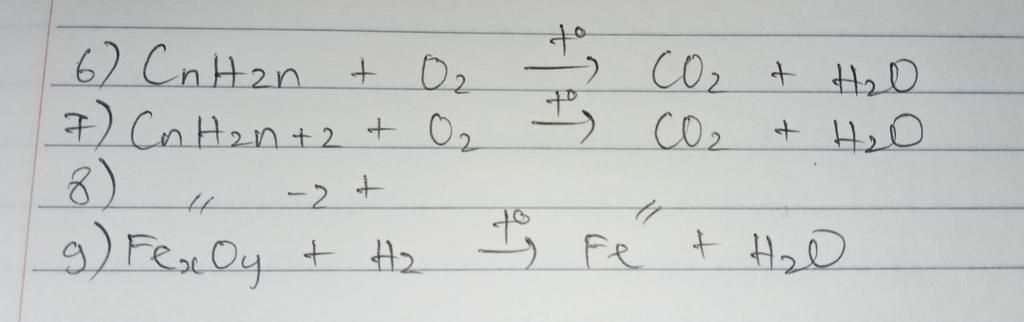 6) CnH2n + O2 →t° CO2 + H2O
7) CnH2n+2 + O2 →t° CO2 + H2O
8) " -2 + "
9) FexOy + H2 →t° Fe + H2O